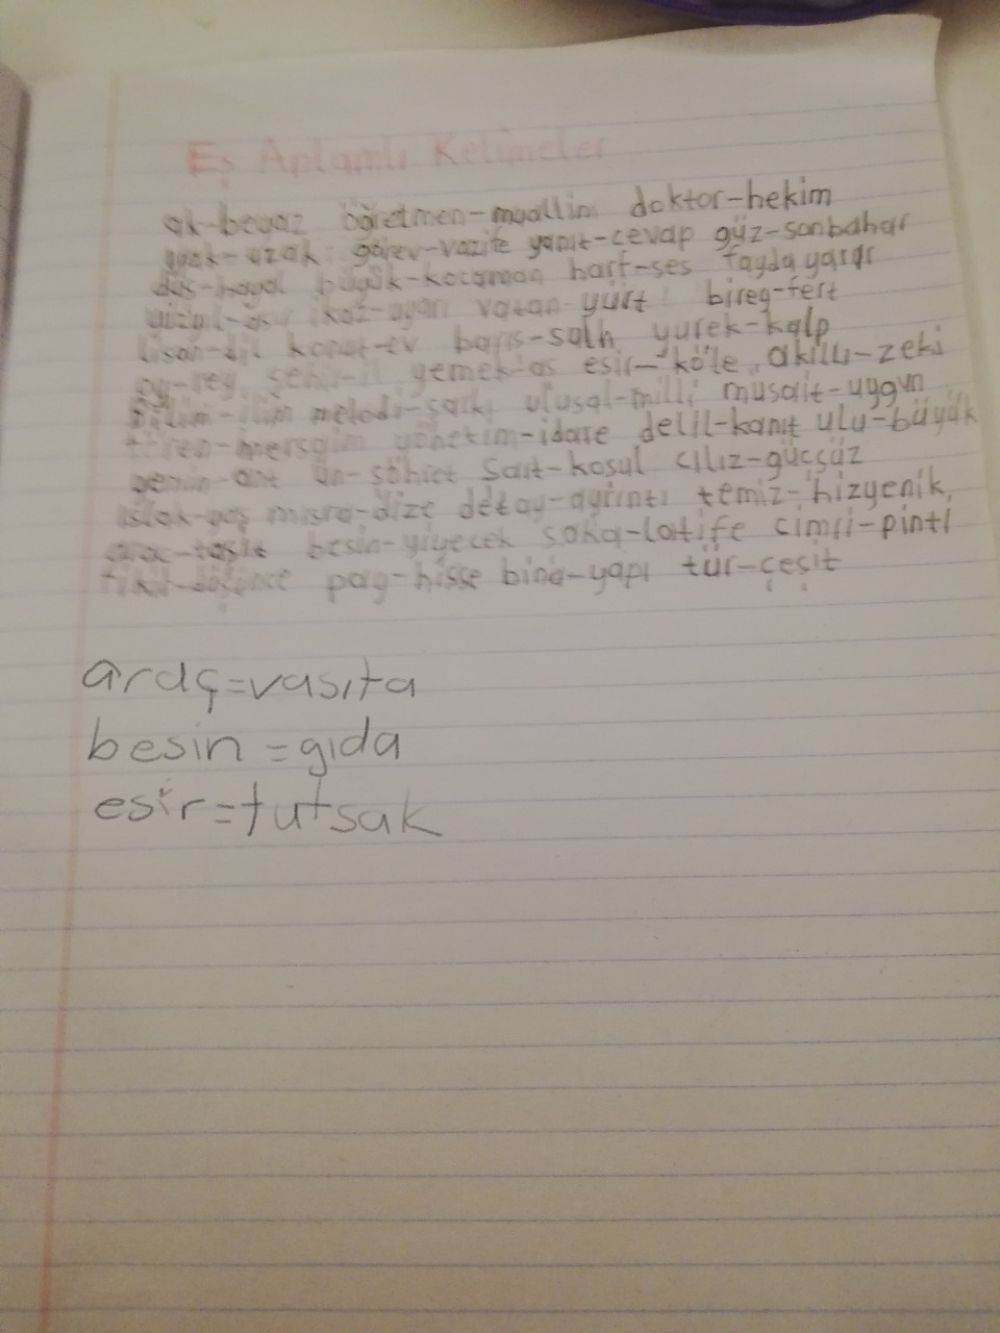 Eş Aplamlı Kelimeler
ak-beyaz öğretmen-muallim doktor-hekim
uzak görev-vazife yanıt-cevap güz-sonbahar
düş-hayal büyük-kocaman harf-ses fayda yarar
ikaz-uyarı vatan-yurt birey-fert
lisan-dil konut-ev barış-solh yurek-kalp
oy-rey şehir-il yemek-as esir-köle akıllı-zeki
bilim-ilim melodi-şarkı ulusal-milli musait-uygun
yönetim-idare delil-kanıt ulu-büyük
yemin-ant ün-söhret Sart-kosul cılız-güçsüz
ıslak-yaş mısra-dize detay-ayrıntı temiz-hizyenik
araç-taşıt besin-yiyecek saka-latife cimri-pinti
pay-hisse bina-yapı tür-çeşit
araç=vasıta
besin=gıda
esir=tutsak